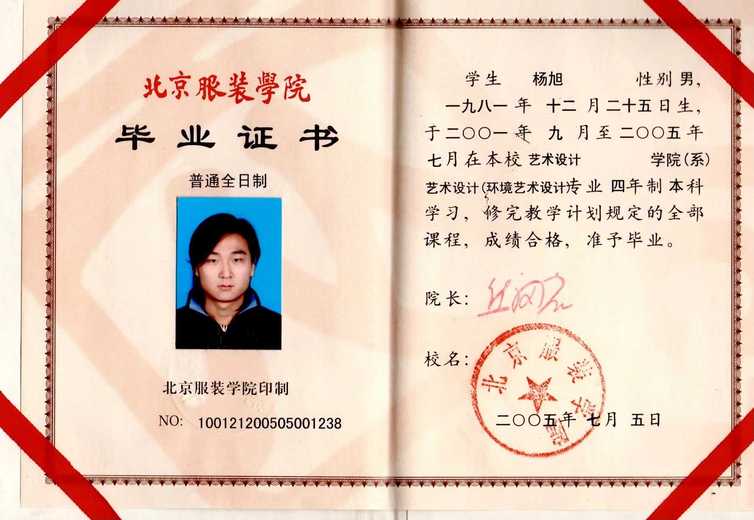 北京服装學院
毕业证书
普通全日制
北京服装学院印制
NO: 100121200505001238
学生 杨旭 性别 男，
一九八一年 十二 月 二十五日生，
于二〇〇一年 九 月至 二〇〇五年
七月在本校 艺术设计 学院(系)
艺术设计(环境艺术设计)专业 四年制 本科
学习，修完教学计划规定的全部
课程，成绩合格，准予毕业。
院长：
校名：
北京服装学院
二〇〇五年 七月 五日